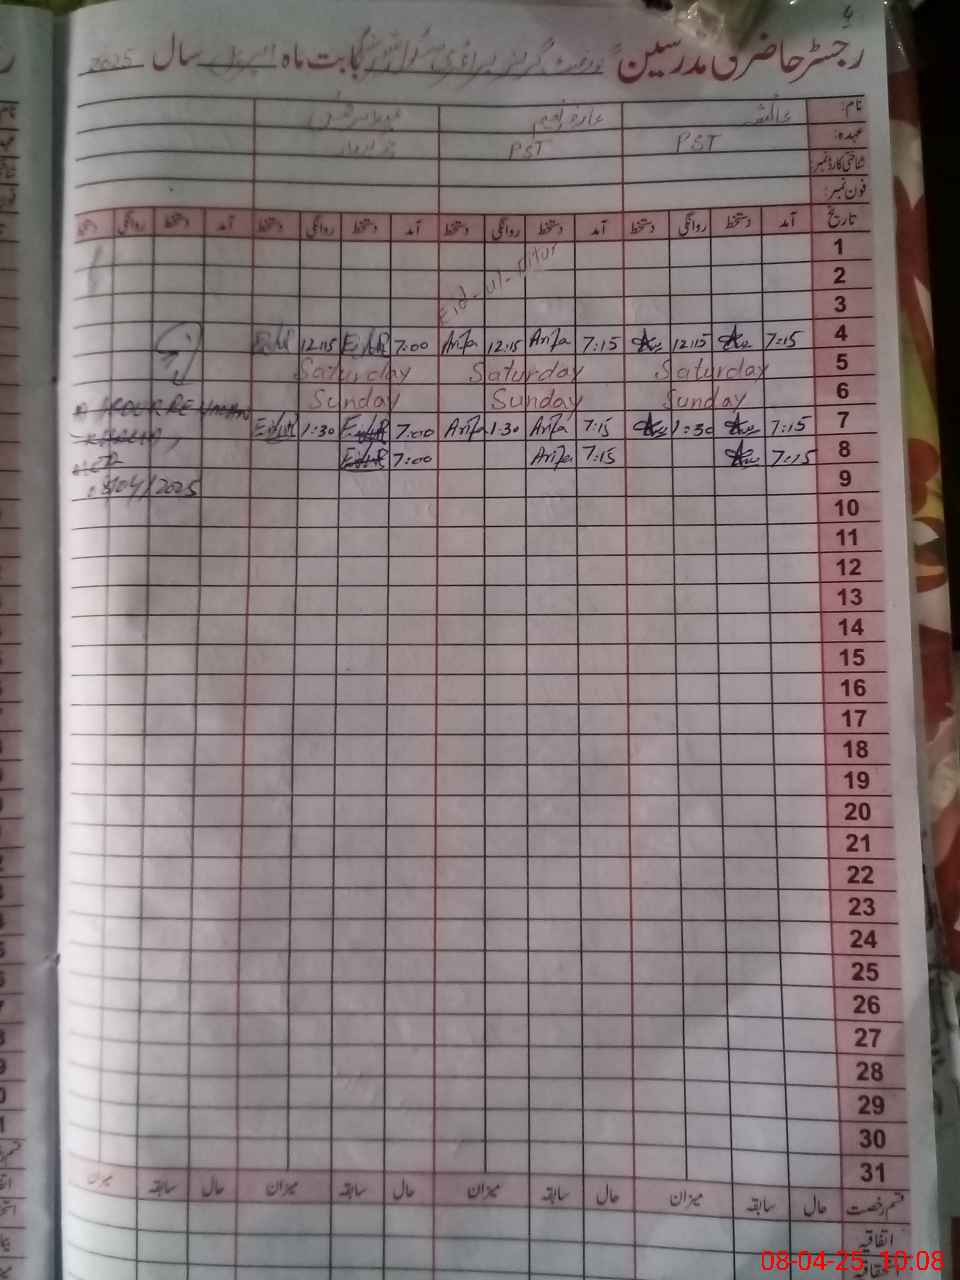 رجسٹر حاضری مدرسین گورنمنٹ گرلز پرائمری سکول بابت ماہ اپریل سال 2025
نام: عائشہ عارفہ نعیم
عہدہ: PST PST چوکیدار
شناختی کارڈ نمبر:
فون نمبر:
تاریخ آمد دستخط روانگی دستخط آمد دستخط روانگی دستخط آمد دستخط روانگی دستخط آمد دستخط روانگی دستخط
1
2 Eid-ul-Fitur
3
12:15 7:00 Arifa 12:15 Arifa 7:15 12:15 7:15 4
Saturday Saturday Saturday 5
Sunday Sunday Sunday 6
1:30 7:00 Arifa 1:30 Arifa 7:15 1:30 7:15 7
7:00 Arifa 7:15 7:15 8
08/04/2025 9
10
11
12
13
14
15
16
17
18
19
20
21
22
23
24
25
26
27
28
29
30
31
قسم رخصت حال سابقہ میزان حال سابقہ میزان حال سابقہ میزان حال سابقہ میزان
اتفاقیہ
08-04-25 10:08